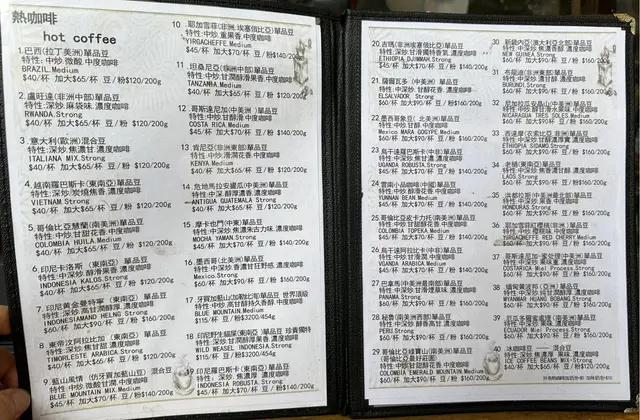 熱咖啡
hot coffee
1.巴西(拉丁美洲)單品豆
特性:中炒,微酸,中度咖啡
BRAZIL.Medium
$40/杯 加大$65/杯 豆/粉$120/200g
2.盧旺達(非洲中部)單品豆
特性:深炒,麻袋味,濃度咖啡
RWANDA.Strong
$40/杯 加大$65/杯 豆/粉 $120/200g
3.意大利(歐洲)混合豆
特性:深炒,焦濃甘,濃度咖啡
ITALIANA MIX.Strong
$40/杯 加大$65/杯 豆/粉 $120/200g
4.越南羅巴斯卡(東南亞)單品豆
特性:深炒,炭燒焦香,濃度咖啡
VIETNAM.Strong
$40/杯 加大$65/杯 豆/粉 $120/200g
5.哥倫比亞慧蘭(南美洲)單品豆
特性:中炒,甘甜花香,中度咖啡
COLOMBIA HUILA.Medium
$40/杯 加大$65/杯 豆/粉 $120/200g
6.印尼卡洛斯 (東南亞)單品豆
特性:中炒,醇滑果香,濃度咖啡
INDONESIA KALOS.Strong
$40/杯 加大$65/杯 豆/粉 $120/200g
7.印尼黃金曼特寧 (東南亞) 單品豆
特性:深炒,高甘潤醇厚,濃度咖啡
Strong
$60/杯 加大$90/杯 豆/粉 $160/200g
8.東帝汶阿拉比加 (東南亞) 單品豆
特性:深炒,焦甘甜,濃度咖啡
TIMORLESTE ARABICA.Strong
$40/杯 加大$65/杯 豆/粉 $120/200g
9.藍山風情 (仿牙買加藍山豆) 混合豆
特性:中炒,微酸甘潤,中度咖啡
BLUE MOUNTAIN MIX.Medium
$45/杯 加大$70/杯 豆/粉$140/200g
10.耶加雪菲(非洲,埃塞俄比亞)單品豆
特性:中炒,重果香,中度咖啡
YIRGACHEFFE.Medium
$40/杯 加大$65/杯 豆/粉$120/200g
11.坦桑尼亞(非洲中部)單品豆
特性:中炒,甘潤醇滑果香,中度咖啡
TANZANNIA.Medium
$40/杯 加大$65/杯 豆/粉$120/200g
12.哥斯達尼加(中美洲)單品豆
特性:中炒,甘醇滑,中度咖啡
COSTA RICA.Medium
$40/杯 加大$65/杯 豆/粉$120/200g
13.肯尼亞(非洲東部)單品豆
特性:中炒,滑潤花香,中度咖啡
KENYA.Medium
$40/杯 加大$65/杯 豆/粉$120/200g
14.危地馬拉安提瓜(中美洲)單品豆
特性:中深,醇厚濃香,濃度咖啡
ANTIGUA GUATEMALA Strong
$40/杯 加大$65/杯 豆/粉$120/200g
15.摩卡也門(中東)單品豆
特性:深炒,焦濃朱古力味,濃度咖啡
MOCHA YAMAN.Strong
$45/杯 加大$70/杯 豆/粉$140/200g
16.墨西哥(北美洲)單品豆
特性:深炒,香濃甘狂野感,濃度咖啡
Mexico.Strong
$60/杯 加大$90/杯 豆/粉$160/200g
17.牙買加藍山(加勒比海)單品豆 世界頂級
特性:中炒,高甘醇持久香醇,中度咖啡
BLUE MOUNTAIN.Medium
$115/杯 豆/粉$3200/454g
18.印尼野生貓屎(東南亞)單品豆 珍貴獨特
特性:深炒,甘潤醇厚果香,濃度咖啡
WILD WEASEL INDONESIA.Strong
$115/杯 豆/粉$3200/454g
19.印尼羅巴斯卡(東南亞)單品豆
特性:深炒,焦醇厚,濃度咖啡
INDONESIA ROBUSTA.Strong
$45/杯 加大$70/杯 豆/粉$140/200g
20.吉瑪(非洲埃塞俄比亞)單品豆
特性:深炒,甘滑獨特香氣,濃度咖啡
ETHIOPIA.DJIMMAH.Strong
$45/杯 加大$70/杯 豆/粉$140/200g
21.薩爾瓦多 (中美洲) 單品豆
特性:深炒,甘醇花香,濃度咖啡
ELSALVADOR Strong
$60/杯 加大$90/杯 豆/粉$160/200g
22.墨西哥象豆( 北美洲)單品豆
特性:中炒,甘醇,中度咖啡
Mexico MARA GOGYPE Medium
$60/杯 加大$90/杯 豆/粉$160/200g
23.烏干達羅巴斯卡(非洲中部)單品豆
特性:深炒,焦甘,濃度咖啡
UGANDA ROBUSTA.Strong
$45/杯 加大$70/杯 豆/粉$140/200g
24.雲南小咖啡(中國)單品豆
特性:中炒,醇滑花香,中度咖啡
YUNNAN BEAN.Medium
$45/杯 加大$70/杯 豆/粉$140/200g
25.哥倫比亞皮卡力托(南美洲)單品豆
特性:中炒,甘醇花香,中度咖啡
COLOMBIA TOPEKA Medium
$45/杯 加大$70/杯 豆/粉$140/200g
26.烏干達阿拉比卡(中非)單品豆
特性:中炒,甘滑潤,中度咖啡
UGANDA ARABICA.Medium
$45/杯 加大$70/杯 豆/粉$140/200g
27.巴拿馬(中美洲最南部)單品豆
特性:深炒,甘滑煙燻味,濃度咖啡
PANAMA.Strong
$60/杯 加大$90/杯 豆/粉$160/200g
28.秘魯(南美洲西部) 單品豆
特性:深炒,醇香高甘,濃度咖啡
PERU.Strong
$60/杯 加大$90/杯 豆/粉$160/200g
29.哥倫比亞綠寶山(南美洲)單品豆
(哥倫比亞最好莊園)
特性:中炒,甘甜醇花香,中度咖啡
COLOMBIA EMERALD MOUNTAIN.Medium
$60/杯 加大$90/杯 豆/粉 $160/200g
30.新鏡內亞(澳大利亞北部)單品豆
特性:深炒,焦濃香醇,濃度咖啡
NEW GUINEA.Strong
$60/杯 加大$90/杯 豆/粉$160/200g
31.布龍迪(非洲東部)單品豆
特性:深炒,焦濃甘醇,濃度咖啡
BURUNDI.Strong
$60/杯 加大$90/杯 豆/粉$160/200g
32.尼加拉瓜安晶山(中美洲)單品豆
NICARAGUA TRES SOLES.Medium
$60/杯 加大$90/杯 豆/粉$160/200g
33.西達摩(衣索比亞,非洲)單品豆
ETHIOPIA SIDAMO.Strong
$60/杯 加大$90/杯 豆/粉$160/200g
34.老撾(東南亞) 單品豆
LAOS.Strong
$60/杯 加大$90/杯 豆/粉$160/200g
35.洪都拉斯(中美洲最北部)單品豆
HONDURAS.Strong
$60/杯 加大$90/杯 豆/粉$160/200g
36.
RED Medium
$60/杯 加大$90/杯 豆/粉$160/200g
37.
COSTARICA Miel Process.Strong
$60/杯 加大$90/杯 豆/粉$160/200g
38.
MYANMAR HUANG BOBANG.Strong
$60/杯 加大$90/杯 豆/粉$160/200g
39.
ECUADOR Miel Process.Strong
$60/杯 加大$90/杯 豆/粉$160/200g
40.
ICE COFFEE BEANS MIX-Strong
$40/杯 加大$65/杯 豆/粉$120/200g